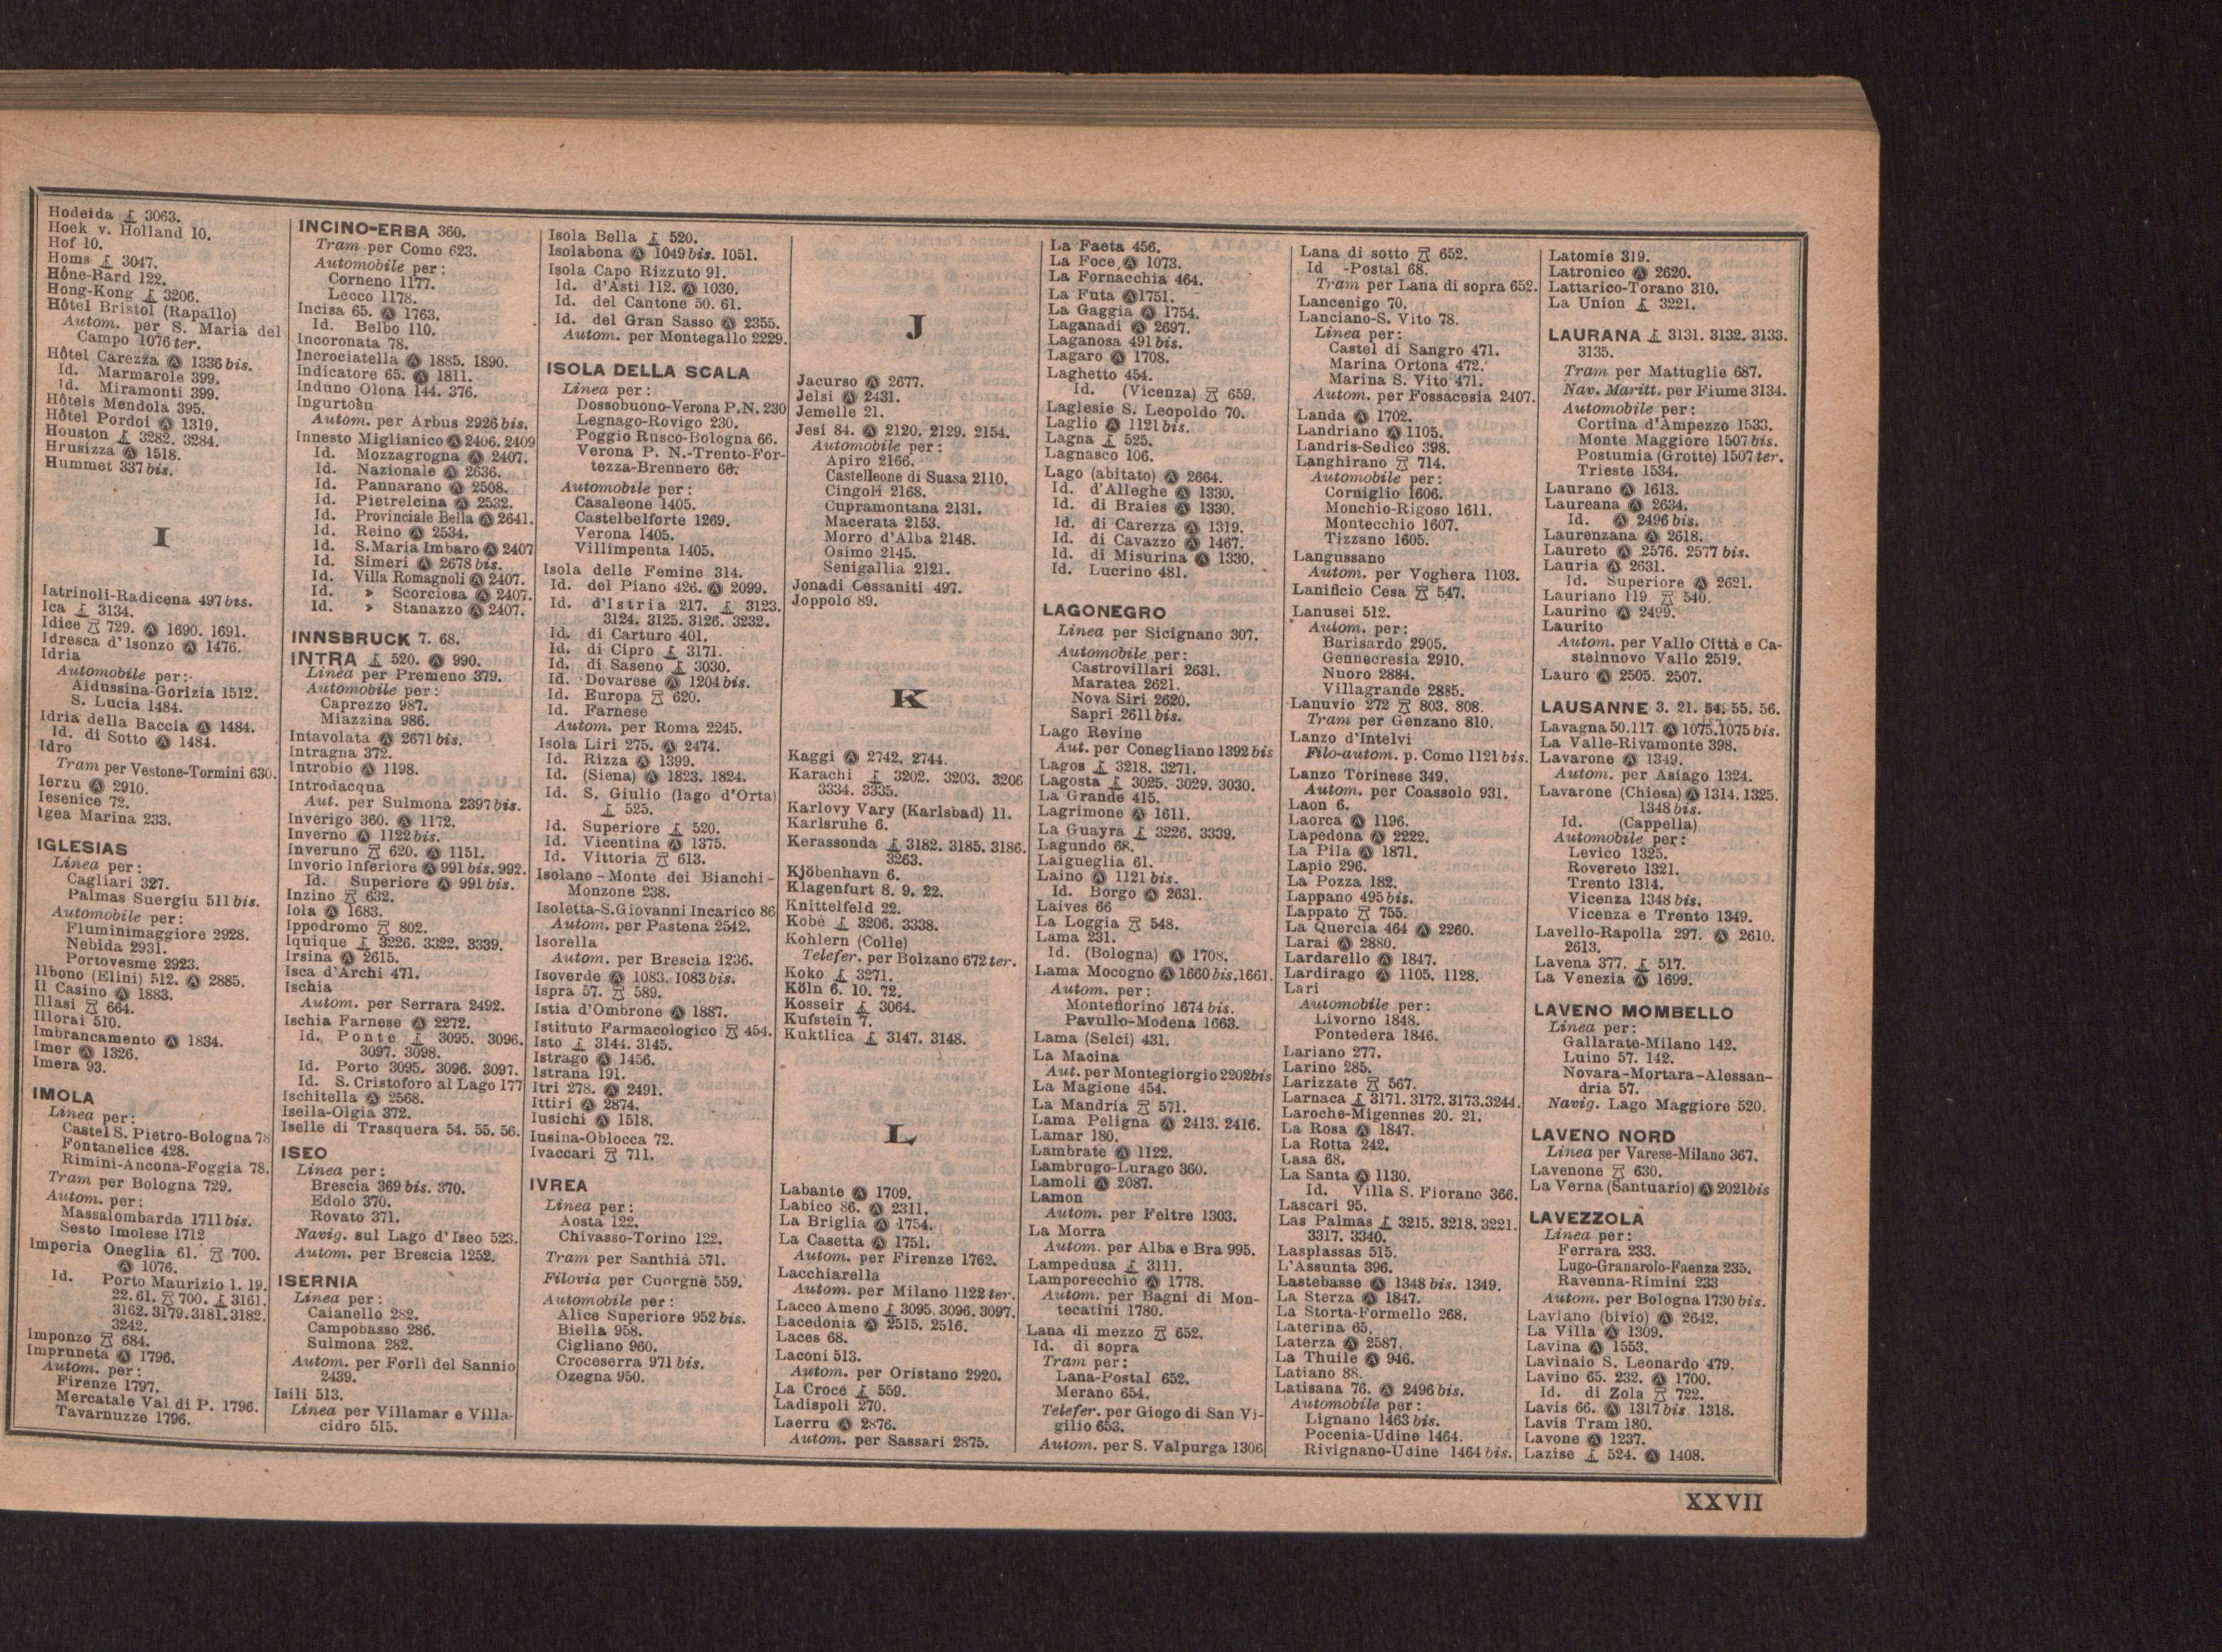 Hodeida ⚓ 3063.
Hoek v. Holland 10.
Hof 10.
Homs ⚓ 3047.
Hône-Bard 122.
Hong-Kong ⚓ 3206.
Hôtel Bristol (Rapallo)
Autom. per S. Maria del
Campo 1076 ter.
Hôtel Carezza Ⓐ 1336 bis.
Id. Marmarole 399.
Id. Miramonti 399.
Hôtels Mendola 395.
Hôtel Pordoi Ⓐ 1319.
Houston ⚓ 3282. 3284.
Hrusizza Ⓐ 1518.
Hummet 337 bis.
I
Iatrinoli-Radicena 497 bis.
Ica ⚓ 3134.
Idice 🚋 729. Ⓐ 1690. 1691.
Idresca d'Isonzo Ⓐ 1476.
Idria
Automobile per:
Aidussina-Gorizia 1512.
S. Lucia 1484.
Idria della Baccia Ⓐ 1484.
Id. di Sotto Ⓐ 1484.
Idro
Tram per Vestone-Tormini 630.
Ierzu Ⓐ 2910.
Iesenice 72.
Igea Marina 233.
IGLESIAS
Linea per:
Cagliari 327.
Palmas Suergiu 511 bis.
Automobile per:
Fluminimaggiore 2928.
Nebida 2931.
Portovesme 2923.
Ilbono (Elini) 512. Ⓐ 2885.
Il Casino Ⓐ 1883.
Illasi 🚋 664.
Illorai 510.
Imbrancamento Ⓐ 1834.
Imer Ⓐ 1326.
Imera 93.
IMOLA
Linea per:
Castel S. Pietro-Bologna 78
Fontanelice 428.
Rimini-Ancona-Foggia 78.
Tram per Bologna 729.
Autom. per:
Massalombarda 1711 bis.
Sesto Imolese 1712
Imperia Oneglia 61. 🚋 700.
Ⓐ 1076.
Id. Porto Maurizio 1. 19.
22. 61. 🚋 700. ⚓ 3161.
3162. 3179. 3181. 3182.
3242.
Imponzo 🚋 684.
Impruneta Ⓐ 1796.
Autom. per:
Firenze 1797.
Mercatale Val di P. 1796.
Tavarnuzze 1796.
INCINO-ERBA 360.
Tram per Como 623.
Automobile per:
Corneno 1177.
Lecco 1178.
Incisa 65. Ⓐ 1763.
Id. Belbo 110.
Incoronata 78.
Incrociatella Ⓐ 1885. 1890.
Indicatore 65. Ⓐ 1811.
Induno Olona 144. 376.
Ingurtosu
Autom. per Arbus 2926 bis.
Innesto Miglianico Ⓐ 2406. 2409
Id. Mozzagrogna Ⓐ 2407.
Id. Nazionale Ⓐ 2636.
Id. Pannarano Ⓐ 2508.
Id. Pietrelcina Ⓐ 2532.
Id. Provinciale Bella Ⓐ 2641.
Id. Reino Ⓐ 2534.
Id. S. Maria Imbaro Ⓐ 2407
Id. Simeri Ⓐ 2678 bis.
Id. Villa Romagnoli Ⓐ 2407.
Id. » Scorciosa Ⓐ 2407.
Id. » Stanazzo Ⓐ 2407.
INNSBRUCK 7. 68.
INTRA ⚓ 520. Ⓐ 990.
Linea per Premeno 379.
Automobile per:
Caprezzo 987.
Miazzina 986.
Intavolata Ⓐ 2671 bis.
Intragna 372.
Introbio Ⓐ 1198.
Introdacqua
Aut. per Sulmona 2397 bis.
Inverigo 360. Ⓐ 1172.
Inverno Ⓐ 1122 bis.
Inveruno 🚋 620. Ⓐ 1151.
Invorio Inferiore Ⓐ 991 bis. 992.
Id. Superiore Ⓐ 991 bis.
Inzino 🚋 632.
Iola Ⓐ 1683.
Ippodromo 🚋 802.
Iquique ⚓ 3226. 3322. 3339.
Irsina Ⓐ 2615.
Isca d'Archi 471.
Ischia
Autom. per Serrara 2492.
Ischia Farnese Ⓐ 2272.
Id. Ponte ⚓ 3095. 3096.
3097. 3098.
Id. Porto 3095. 3096. 3097.
Id. S. Cristoforo al Lago 177
Ischitella Ⓐ 2568.
Isella-Olgia 372.
Iselle di Trasquera 54. 55. 56.
ISEO
Linea per:
Brescia 369 bis. 370.
Edolo 370.
Rovato 371.
Navig. sul Lago d'Iseo 523.
Autom. per Brescia 1252.
ISERNIA
Linea per:
Caianello 282.
Campobasso 286.
Sulmona 282.
Autom. per Forlì del Sannio
2439.
Isili 513.
Linea per Villamar e Villa-
cidro 515.
Isola Bella ⚓ 520.
Isolabona Ⓐ 1049 bis. 1051.
Isola Capo Rizzuto 91.
Id. d'Asti 112. Ⓐ 1030.
Id. del Cantone 50. 61.
Id. del Gran Sasso Ⓐ 2355.
Autom. per Montegallo 2229.
ISOLA DELLA SCALA
Linea per:
Dossobuono-Verona P.N. 230
Legnago-Rovigo 230.
Poggio Rusco-Bologna 66.
Verona P. N.-Trento-For-
tezza-Brennero 66.
Automobile per:
Casaleone 1405.
Castelbelforte 1269.
Verona 1405.
Villimpenta 1405.
Isola delle Femine 314.
Id. del Piano 426. Ⓐ 2099.
Id. d'Istria 217. ⚓ 3123.
3124. 3125. 3126. 3232.
Id. di Carturo 401.
Id. di Cipro ⚓ 3171.
Id. di Saseno ⚓ 3030.
Id. Dovarese Ⓐ 1204 bis.
Id. Europa 🚋 620.
Id. Farnese
Autom. per Roma 2245.
Isola Liri 275. Ⓐ 2474.
Id. Rizza Ⓐ 1399.
Id. (Siena) Ⓐ 1823. 1824.
Id. S. Giulio (lago d'Orta)
⚓ 525.
Id. Superiore ⚓ 520.
Id. Vicentina Ⓐ 1375.
Id. Vittoria 🚋 613.
Isolano - Monte dei Bianchi -
Monzone 238.
Isoletta-S. Giovanni Incarico 86
Autom. per Pastena 2542.
Isorella
Autom. per Brescia 1236.
Isoverde Ⓐ 1083. 1083 bis.
Ispra 57. 🚋 589.
Istia d'Ombrone Ⓐ 1887.
Istituto Farmacologico 🚋 454.
Isto ⚓ 3144. 3145.
Istrago Ⓐ 1456.
Istrana 191.
Itri 278. Ⓐ 2491.
Ittiri Ⓐ 2874.
Iusichi Ⓐ 1518.
Iusina-Oblocca 72.
Ivaccari 🚋 711.
IVREA
Linea per:
Aosta 122.
Chivasso-Torino 122.
Tram per Santhià 571.
Filovia per Cuorgnè 559.
Automobile per:
Alice Superiore 952 bis.
Biella 958.
Cigliano 960.
Croceserra 971 bis.
Ozegna 950.
J
Jacurso Ⓐ 2677.
Jelsi Ⓐ 2431.
Jemelle 21.
Jesi 84. Ⓐ 2120. 2129. 2154.
Automobile per:
Apiro 2166.
Castelleone di Suasa 2110.
Cingoli 2168.
Cupramontana 2131.
Macerata 2153.
Morro d'Alba 2148.
Osimo 2145.
Senigallia 2121.
Jonadi Cessaniti 497.
Joppolo 89.
K
Kaggi Ⓐ 2742. 2744.
Karachi ⚓ 3202. 3203. 3206
3334. 3335.
Karlovy Vary (Karlsbad) 11.
Karlsruhe 6.
Kerassonda ⚓ 3182. 3185. 3186.
3263.
Kjöbenhavn 6.
Klagenfurt 8. 9. 22.
Knittelfeld 22.
Kobè ⚓ 3206. 3338.
Kohlern (Colle)
Telefer. per Bolzano 672 ter.
Koko ⚓ 3271.
Köln 6. 10. 72.
Kosseir ⚓ 3064.
Kufstein 7.
Kuktlica ⚓ 3147. 3148.
L
Labante Ⓐ 1709.
Labico 86. Ⓐ 2311.
La Briglia Ⓐ 1754.
La Casetta Ⓐ 1751.
Autom. per Firenze 1762.
Lacchiarella
Autom. per Milano 1122 ter.
Lacco Ameno ⚓ 3095. 3096. 3097.
Lacedonia Ⓐ 2515. 2516.
Laces 68.
Laconi 513.
Autom. per Oristano 2920.
La Croce ⚓ 559.
Ladispoli 270.
Laerru Ⓐ 2876.
Autom. per Sassari 2875.
La Faeta 456.
La Foce Ⓐ 1073.
La Fornacchia 464.
La Futa Ⓐ 1751.
La Gaggia Ⓐ 1754.
Laganadi Ⓐ 2697.
Laganosa 491 bis.
Lagaro Ⓐ 1708.
Laghetto 454.
Id. (Vicenza) 🚋 659.
Laglesie S. Leopoldo 70.
Laglio Ⓐ 1121 bis.
Lagna ⚓ 525.
Lagnasco 106.
Lago (abitato) Ⓐ 2664.
Id. d'Alleghe Ⓐ 1330.
Id. di Braies Ⓐ 1330.
Id. di Carezza Ⓐ 1319.
Id. di Cavazzo Ⓐ 1467.
Id. di Misurina Ⓐ 1330.
Id. Lucrino 481.
LAGONEGRO
Linea per Sicignano 307.
Automobile per:
Castrovillari 2631.
Maratea 2621.
Nova Siri 2620.
Sapri 2611 bis.
Lago Revine
Aut. per Conegliano 1392 bis
Lagos ⚓ 3218. 3271.
Lagosta ⚓ 3025. 3029. 3030.
La Grande 415.
Lagrimone Ⓐ 1611.
La Guayra ⚓ 3226. 3339.
Lagundo 68.
Laigueglia 61.
Laino Ⓐ 1121 bis.
Id. Borgo Ⓐ 2631.
Laives 66
La Loggia 🚋 548.
Lama 231.
Id. (Bologna) Ⓐ 1708.
Lama Mocogno Ⓐ 1660 bis, 1661.
Autom. per:
Montefiorino 1674 bis.
Pavullo-Modena 1663.
Lama (Selci) 431.
La Macina
Aut. per Montegiorgio 2202 bis
La Magione 454.
La Mandria 🚋 571.
Lama Peligna Ⓐ 2413. 2416.
Lamar 180.
Lambrate Ⓐ 1122.
Lambrugo-Lurago 360.
Lamoli Ⓐ 2087.
Lamon
Autom. per Feltre 1303.
La Morra
Autom. per Alba e Bra 995.
Lampedusa ⚓ 3111.
Lamporecchio Ⓐ 1778.
Autom. per Bagni di Mon-
tecatini 1780.
Lana di mezzo 🚋 652.
Id. di sopra
Tram per:
Lana-Postal 652.
Merano 654.
Telefer. per Giogo di San Vi-
gilio 653.
Autom. per S. Valpurga 1306
Lana di sotto 🚋 652.
Id -Postal 68.
Tram per Lana di sopra 652.
Lancenigo 70.
Lanciano-S. Vito 78.
Linea per:
Castel di Sangro 471.
Marina Ortona 472.
Marina S. Vito 471.
Autom. per Fossacesia 2407.
Landa Ⓐ 1702.
Landriano Ⓐ 1105.
Landris-Sedico 398.
Langhirano 🚋 714.
Automobile per:
Corniglio 1606.
Monchio-Rigoso 1611.
Montecchio 1607.
Tizzano 1605.
Langussano
Autom. per Voghera 1103.
Lanificio Cesa 🚋 547.
Lanusei 512.
Autom. per:
Barisardo 2905.
Gennecresia 2910.
Nuoro 2884.
Villagrande 2885.
Lanuvio 272 🚋 803. 808.
Tram per Genzano 810.
Lanzo d'Intelvi
Filo-autom. p. Como 1121 bis.
Lanzo Torinese 349.
Autom. per Coassolo 931.
Laon 6.
Laorca Ⓐ 1196.
Lapedona Ⓐ 2222.
La Pila Ⓐ 1871.
Lapio 296.
La Pozza 182.
Lappano 495 bis.
Lappato 🚋 755.
La Quercia 464 Ⓐ 2260.
Larai Ⓐ 2880.
Lardarello Ⓐ 1847.
Lardirago Ⓐ 1105. 1128.
Lari
Automobile per:
Livorno 1848.
Pontedera 1846.
Lariano 277.
Larino 285.
Larizzate 🚋 567.
Larnaca ⚓ 3171. 3172. 3173. 3244.
Laroche-Migennes 20. 21.
La Rosa Ⓐ 1847.
La Rotta 242.
Lasa 68.
La Santa Ⓐ 1130.
Id. Villa S. Fiorano 366.
Lascari 95.
Las Palmas ⚓ 3215. 3218. 3221.
3317. 3340.
Lasplassas 515.
L'Assunta 396.
Lastebasse Ⓐ 1348 bis. 1349.
La Sterza Ⓐ 1847.
La Storta-Formello 268.
Laterina 65.
Laterza Ⓐ 2587.
La Thuile Ⓐ 946.
Latiano 88.
Latisana 76. Ⓐ 2496 bis.
Automobile per:
Lignano 1463 bis.
Pocenia-Udine 1464.
Rivignano-Udine 1464 bis.
Latomie 319.
Latronico Ⓐ 2620.
Lattarico-Torano 310.
La Union ⚓ 3221.
LAURANA ⚓ 3131. 3132. 3133.
3135.
Tram per Mattuglie 687.
Nav. Maritt. per Fiume 3134.
Automobile per:
Cortina d'Ampezzo 1533.
Monte Maggiore 1507 bis.
Postumia (Grotte) 1507 ter.
Trieste 1534.
Laurano Ⓐ 1613.
Laureana Ⓐ 2634.
Id. Ⓐ 2496 bis.
Laurenzana Ⓐ 2618.
Laureto Ⓐ 2576. 2577 bis.
Lauria Ⓐ 2631.
Id. Superiore Ⓐ 2621.
Lauriano 119. 🚋 540.
Laurino Ⓐ 2499.
Laurito
Autom. per Vallo Città e Ca-
stelnuovo Vallo 2519.
Lauro Ⓐ 2505. 2507.
LAUSANNE 3. 21. 54. 55. 56.
Lavagna 50. 117. Ⓐ 1075. 1075 bis.
La Valle-Rivamonte 398.
Lavarone Ⓐ 1349.
Autom. per Asiago 1324.
Lavarone (Chiesa) Ⓐ 1314. 1325.
1348 bis.
Id. (Cappella)
Automobile per:
Levico 1325.
Rovereto 1321.
Trento 1314.
Vicenza 1348 bis.
Vicenza e Trento 1349.
Lavello-Rapolla 297. Ⓐ 2610.
2613.
Lavena 377. ⚓ 517.
La Venezia Ⓐ 1699.
LAVENO MOMBELLO
Linea per:
Gallarate-Milano 142.
Luino 57. 142.
Novara-Mortara-Alessan-
dria 57.
Navig. Lago Maggiore 520.
LAVENO NORD
Linea per Varese-Milano 367.
Lavenone 🚋 630.
La Verna (Santuario) Ⓐ 2021 bis
LAVEZZOLA
Linea per:
Ferrara 233.
Lugo-Granarolo-Faenza 235.
Ravenna-Rimini 233
Autom. per Bologna 1730 bis.
Laviano (bivio) Ⓐ 2642.
La Villa Ⓐ 1309.
Lavina Ⓐ 1553.
Lavinaio S. Leonardo 479.
Lavino 65. 232. Ⓐ 1700.
Id. di Zola 🚋 722.
Lavis 66. Ⓐ 1317 bis 1318.
Lavis Tram 180.
Lavone Ⓐ 1237.
Lazise ⚓ 524. Ⓐ 1408.
XXVII